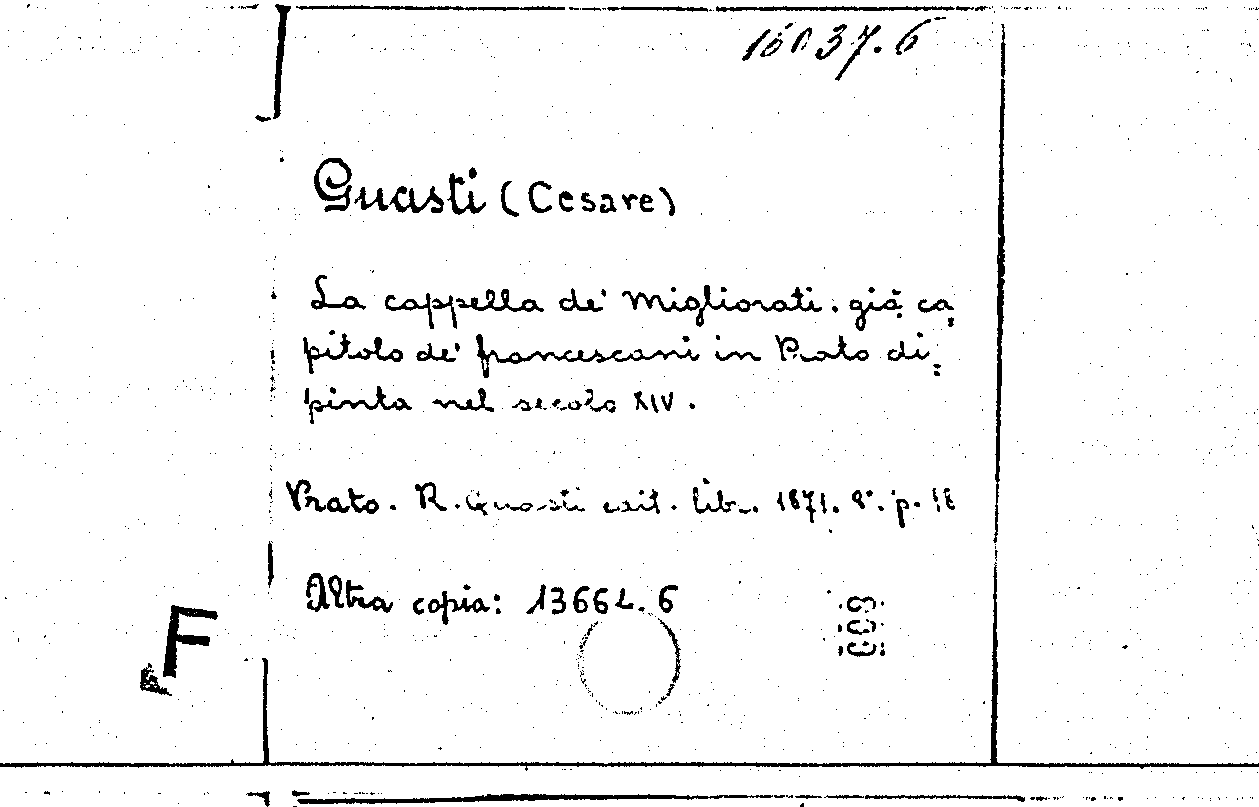 16037.6
Guasti (Cesare)
La cappella de' Migliorati. già ca
pitolo de' francescani in Prato di=
pinta nel secolo XIV.
Prato. R. Guasti edit. lib. 1871. 8°. p. 18
Altra copia: 13664. 6
F